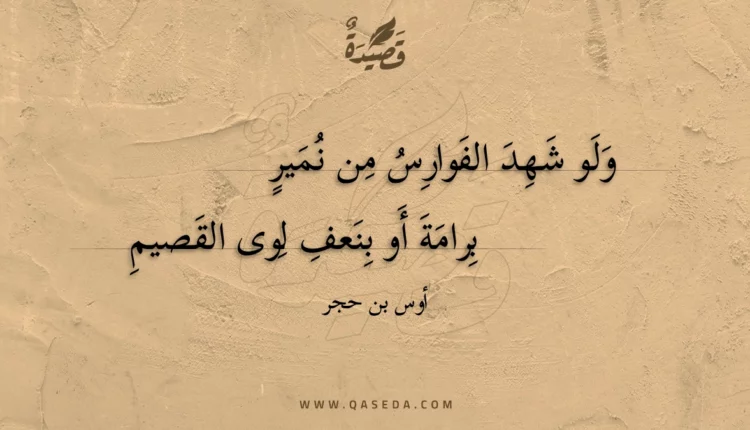 قَصِيدَةٌ
وَلَو شَهِدَ الفَوارِسُ مِن نُمَيرٍ
بِرامَةَ أَو بِنَعفِ لِوى القَصيمِ
أوس بن حجر
WWW.QASEDA.COM